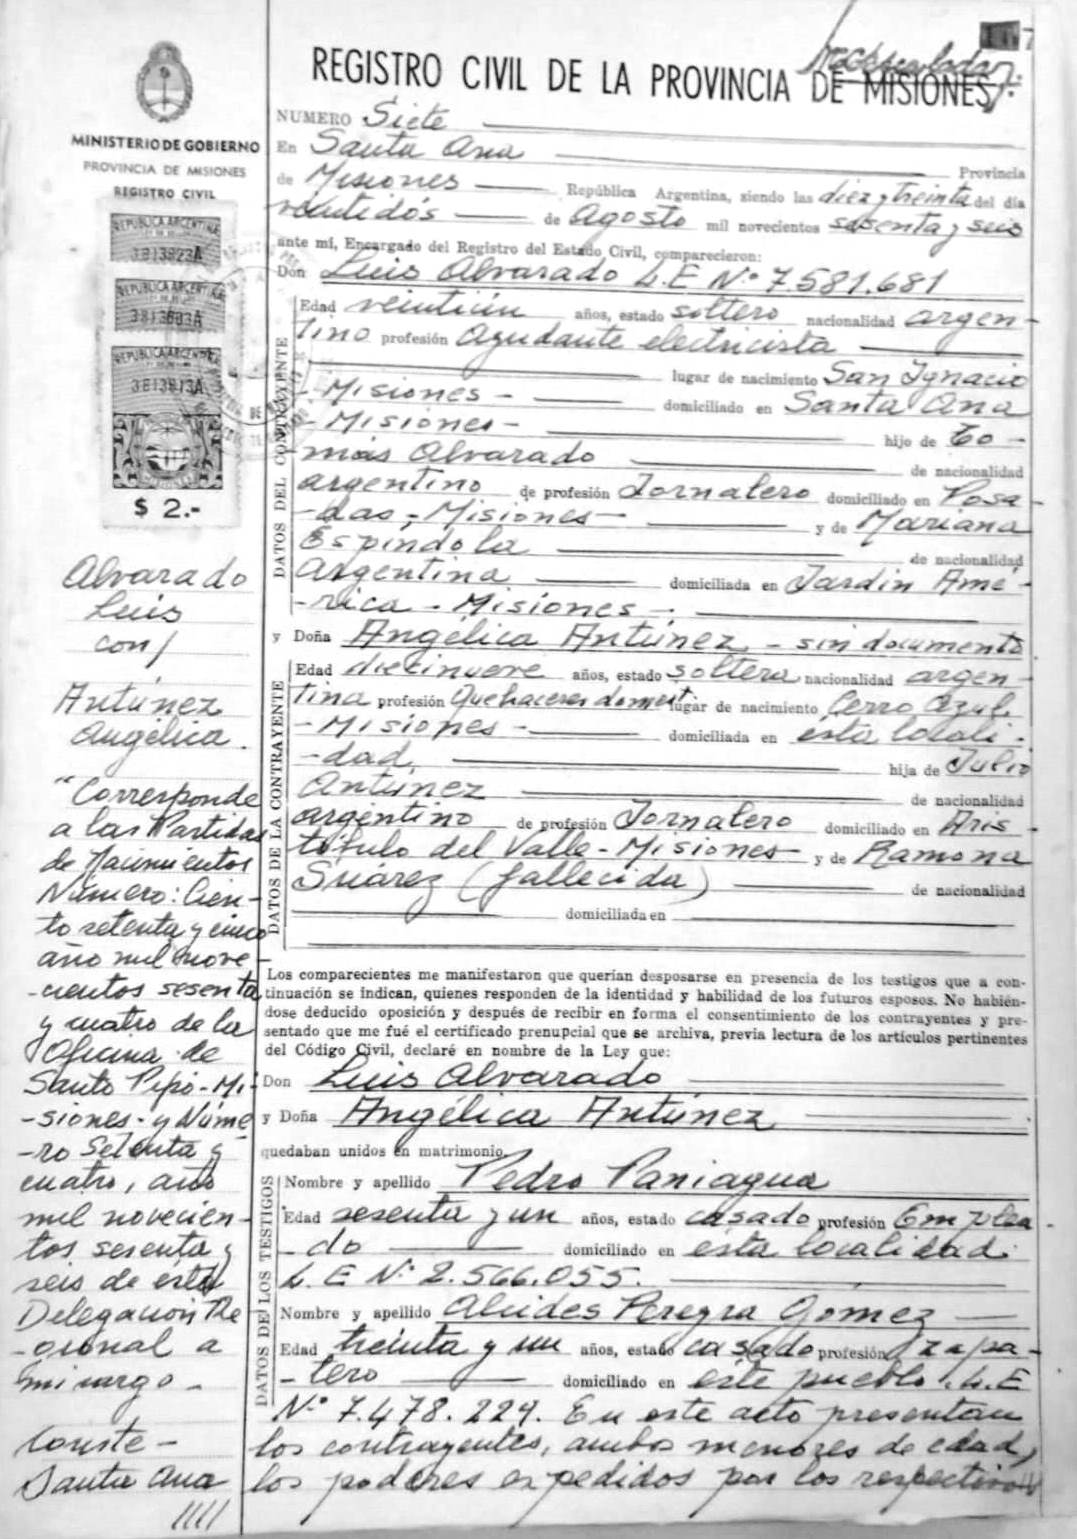 REGISTRO CIVIL DE LA PROVINCIA DE MISIONES
MINISTERIO DE GOBIERNO
PROVINCIA DE MISIONES
REGISTRO CIVIL
REPUBLICA ARGENTINA
3813823A
REPUBLICA ARGENTINA
3813803A
REPUBLICA ARGENTINA
3813813A
$ 2.-
Alvarado
Luis
con/
Antúnez
Angélica.
"Corresponde
a las Partidas
de Nacimientos
Número: Cien-
to setenta y cinco
año mil nove-
-cientos sesenta
y cuatro de la
Oficina de
Santo Pipó-Mi-
-siones- y Núme
-ro Setenta y
cuatro, año
mil novecien-
tos sesenta y
seis de esta
Delegación Re
-gional a
mi cargo -
Conste-
Santa Ana
////
NUMERO Siete
En Santa Ana Provincia
de Misiones República Argentina, siendo las diez y treinta del día
veintidós de Agosto mil novecientos sesenta y seis
ante mí, Encargado del Registro del Estado Civil, comparecieron:
Don Luis Alvarado L.E Nº 7.581.681
DATOS DEL CONTRAYENTE
Edad veintiún años, estado soltero nacionalidad argen-
tino profesión Ayudante electricista
lugar de nacimiento San Ignacio
- Misiones - domiciliado en Santa Ana
- Misiones - hijo de To-
más Alvarado de nacionalidad
argentino de profesión Jornalero domiciliado en Posa-
-das,- Misiones- y de Mariana
Espíndola de nacionalidad
Argentina domiciliada en Jardín Amé-
-rica - Misiones -
y Doña Angélica Antúnez - sin documento.
DATOS DE LA CONTRAYENTE
Edad diecinueve años, estado soltera nacionalidad argen-
tina profesión Quehaceres domest. lugar de nacimiento Cerro Azul
- Misiones - domiciliada en ésta locali-
-dad, hija de Julio
Antúnez de nacionalidad
argentino de profesión Jornalero domiciliado en Aris-
tóbulo del Valle - Misiones- y de Ramona
Suárez (fallecida) de nacionalidad
domiciliada en
Los comparecientes me manifestaron que querían desposarse en presencia de los testigos que a con-
tinuación se indican, quienes responden de la identidad y habilidad de los futuros esposos. No habién-
dose deducido oposición y después de recibir en forma el consentimiento de los contrayentes y pre-
sentado que me fué el certificado prenupcial que se archiva, previa lectura de los artículos pertinentes
del Código Civil, declaré en nombre de la Ley que:
Don Luis Alvarado
y Doña Angélica Antúnez
quedaban unidos en matrimonio.
DATOS DE LOS TESTIGOS
Nombre y apellido Pedro Paniagua
Edad sesenta y un años, estado casado profesión Emplea-
-do domiciliado en ésta localidad.
L.E Nº 2.566.055.
Nombre y apellido Alcides Pereyra Gómez
Edad treinta y un años, estado casado profesión zapa-
-tero domiciliado en éste pueblo. L.E
Nº 7.478.229. En este acto presentan
los contrayentes, ambos menores de edad,
los poderes expedidos por los respectivos